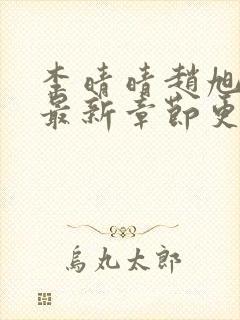 李晴晴趙旭
最新章節更
烏丸太郎